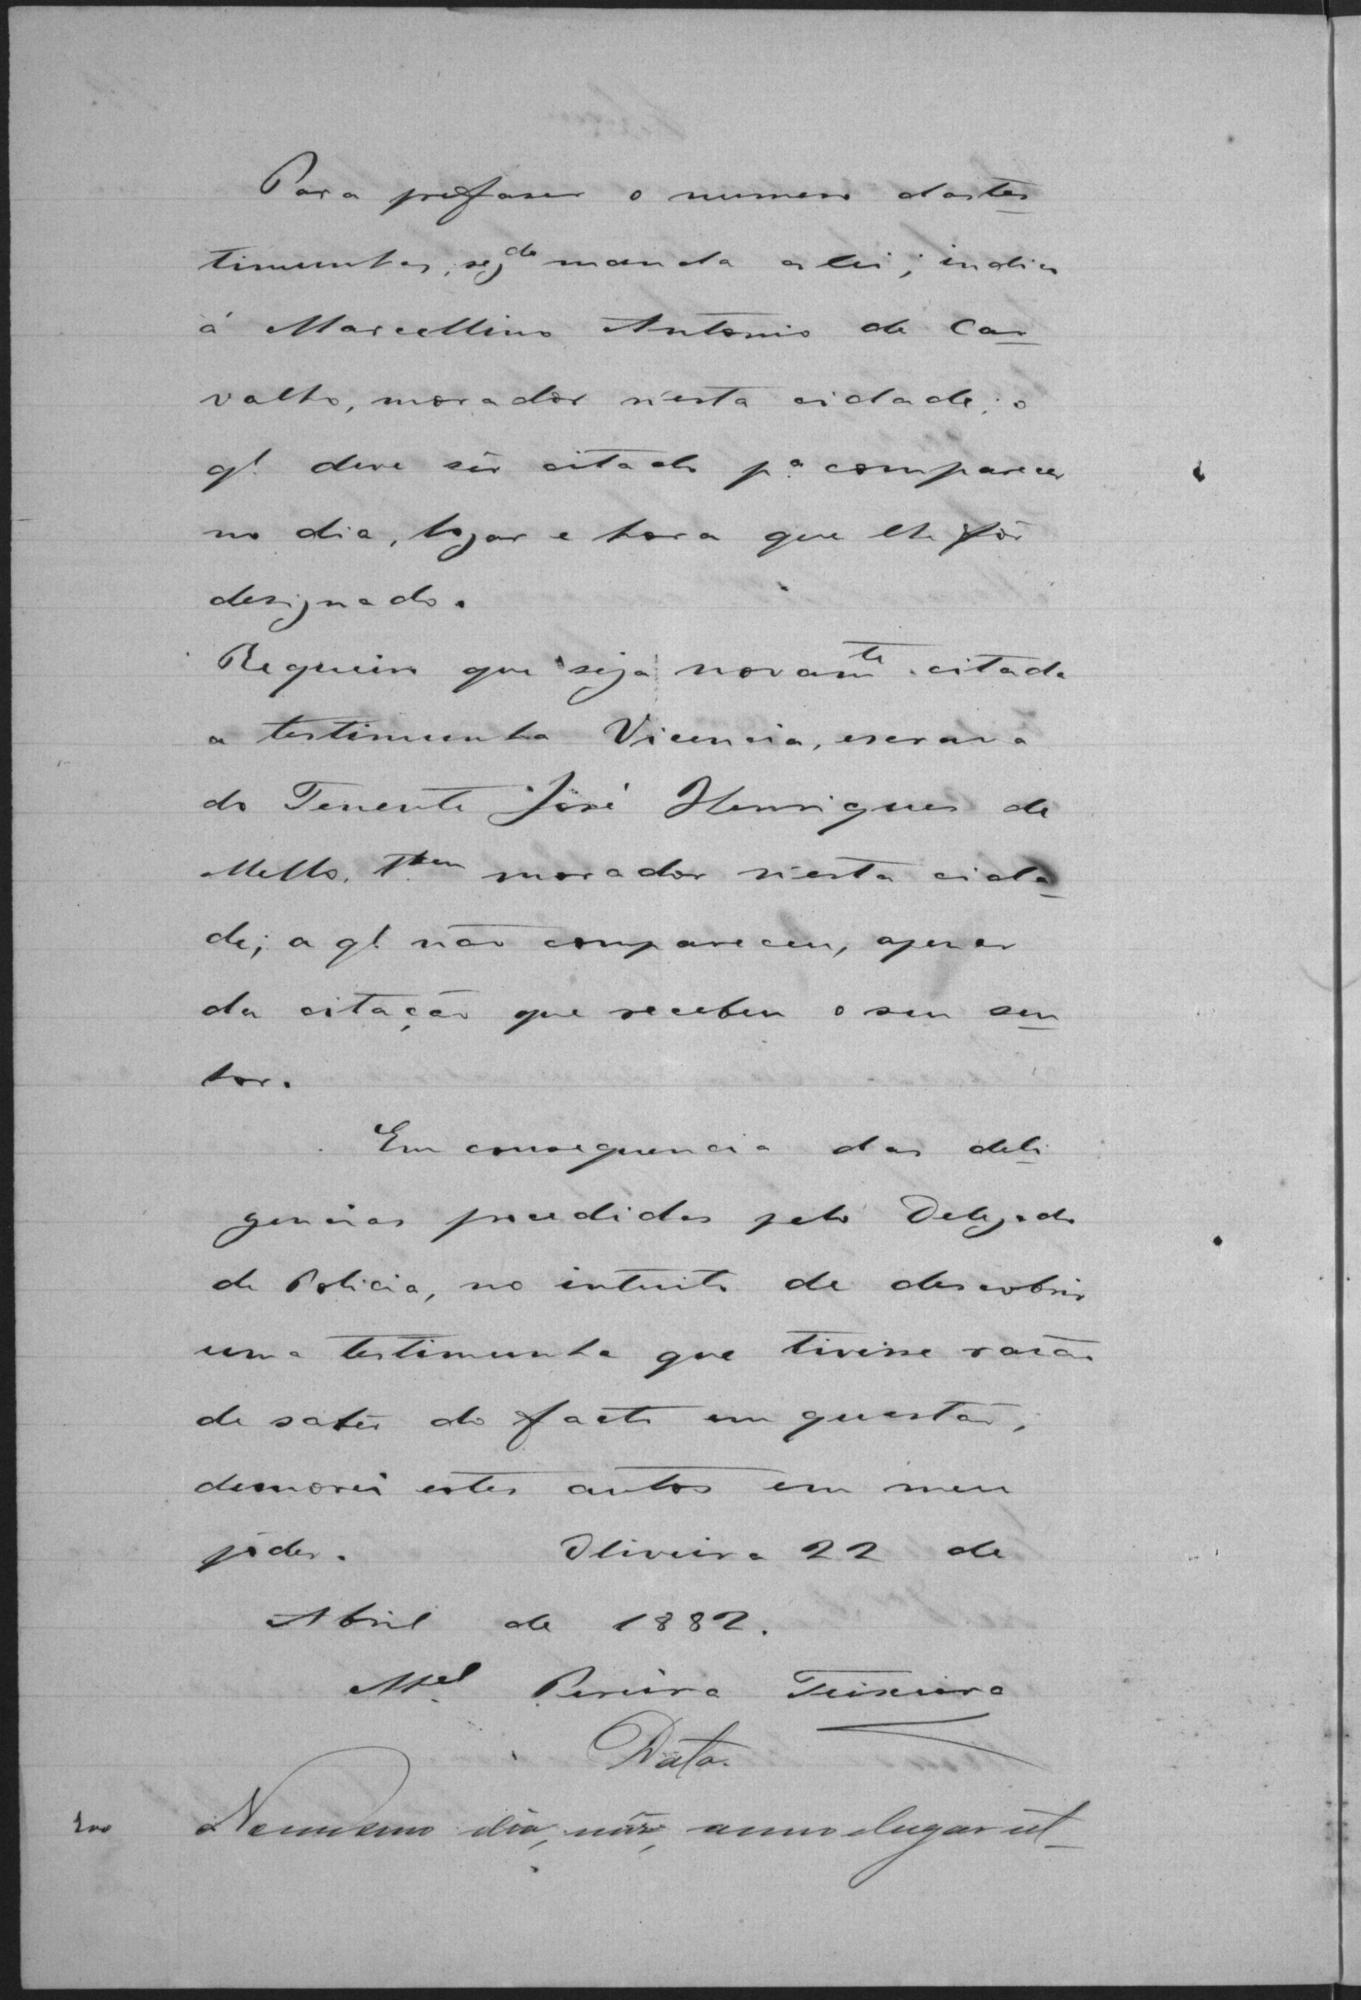 Para prefaser o numero das tes
timunhas, seg.do manda a lei; indico
á Marcellino Antonio de Car
valho, moradôr n'esta cidade; o
ql. deve sêr citado p.a comparecer
no dia, logar e hora que lhe fôr
designado.
Requeiro que seja novam.te citada
a testimunha Vicencia, escrava
do Tenente José Henriques de
Mello, t.bem morador n'esta cida
de; a ql. não compareceu, apesar
da citação que recebeu o seu sen
hor.
Em consequencia das deli
gencias procedidas pelo Delegado
de Policia, no intuito de descobrir
uma testimunha que tivisse rasão
de sabêr do facto em questão,
demorei estes autos em meu
pôder. Oliveira 22 de
Abril de 1882.
M.el Pereira Teixeira
Data
200 No mesmo dia, mês, anno e lugar ut